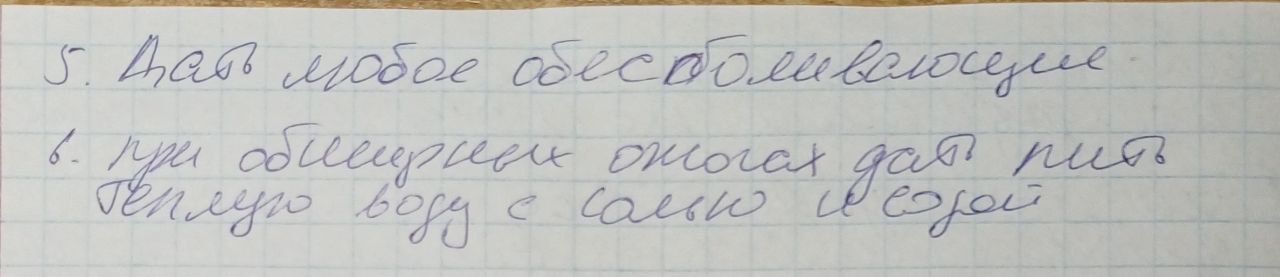 5. Дать любое обезболивающие
6. при обширных ожогах дать пить
теплую воду с солью и содой